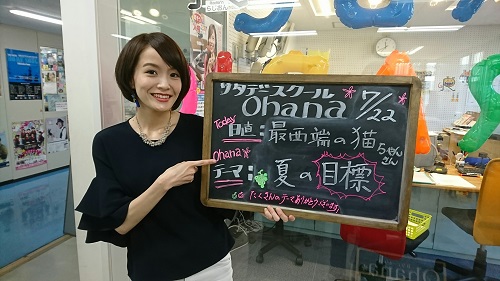 サタデースクール
Ohana* 7/22
Today
日直:最西端の猫
ちゃんさん
Ohana*
テーマ:夏の目標
たくさんのテーマありがとうございます!
Ohana